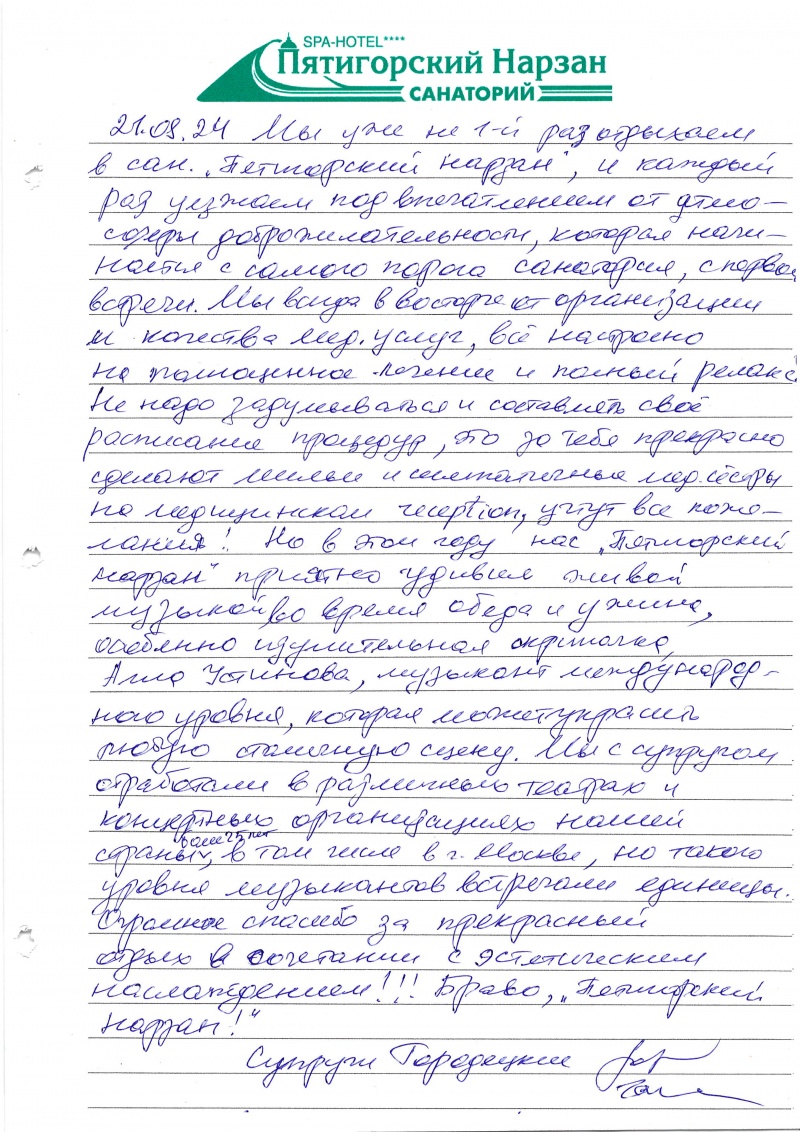 SPA-HOTEL****
Пятигорский Нарзан
САНАТОРИЙ
21.09.24 Мы уже не 1-й раз отдыхаем
в сан. „Пятигорский нарзан", и каждый
раз уезжаем под впечатлением от атмо-
сферы доброжелательности, которая начи-
нается с самого порога санатория, с первой
встречи. Мы всегда в восторге от организации
и качества мед. услуг, всё настроено
на полноценное лечение и полный релакс.
Не надо задумываться и составлять своё
расписание процедур, это за тебя прекрасно
сделают милые и симпатичные мед. сёстры
на медицинском reception, учтут все поже-
лания! Но в этом году нас „Пятигорский
нарзан" приятно удивил живой
музыкой во время обеда и ужина,
особенно изумительная скрипачка,
Алла Устинова, музыкант международ-
ного уровня, которая может украсить
любую столичную сцену. Мы с супругом
отработали в различных театрах и
концертных организациях нашей
более 25 лет
страны, в том числе в г. Москве, но такого
уровня музыкантов встречали единицы.
Огромное спасибо за прекрасный
отдых в сочетании с эстетическим
наслаждением!!! Браво, „Пятигорский
нарзан!"
Супруги Городецкие